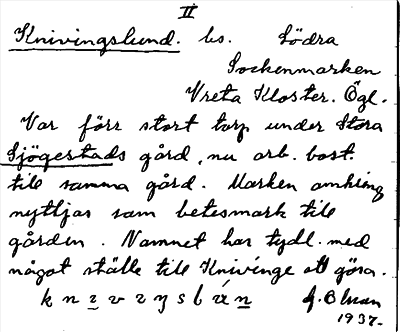 II
Knivingslund. bs. Södra
Sockenmarken
Vreta Kloster. Ögl.
Var förr stort torp under Stora
Sjögestads gård, nu arb. bost.
till samma gård. Marken omkring
nyttjas som betesmark till
gården. Namnet har tydl. med
något ställe till Knivinge att göra.
1937.